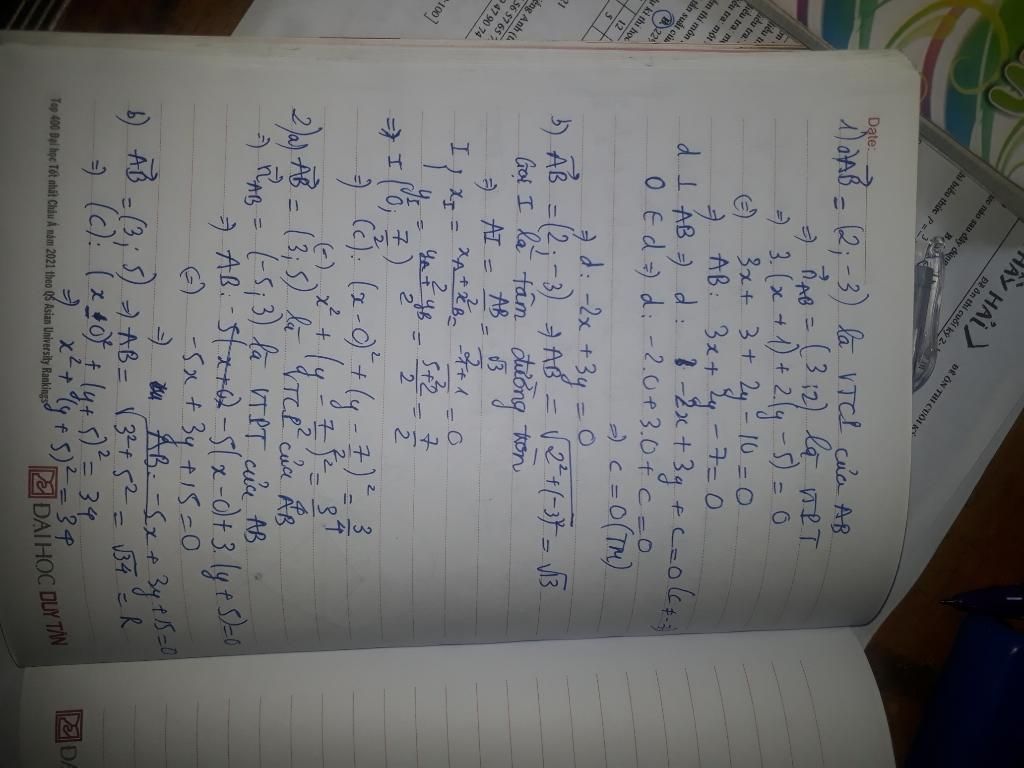 Date:
1) a) AB = (2; -3) là VTCP của AB
=> n AB = (3; 2) là VTPT
=> 3.(x + 1) + 2.(y - 5) = 0
(=) 3x + 3 + 2y - 10 = 0
=> AB: 3x + 2y - 7 = 0
d ⊥ AB => d: -2x + 3y + c = 0
O ∈ d => d: -2.0 + 3.0 + c = 0
=> c = 0 (TM)
=> d: -2x + 3y = 0
b) AB = (2; -3) => AB = √2² + (-3)² = √13
Gọi I là tâm đường tròn
=> AI = AB/2 = √13/2
I { xI = xA + xB/2 = -1 + 1/2 = 0
yI = yA + yB/2 = 5 + 2/2 = 7/2
=> I (0; 7/2)
=> (C): (x - 0)² + (y - 7/2)² =
(=) x² + (y - 7/2)² =
2) a) AB = (3; 5) là VTCP của AB
=> n AB = (-5; 3) là VTPT của AB
=> AB: -5(x - 0) + 3.(y + 5) = 0
(=) -5x + 3y + 15 = 0
=> AB: -5x + 3y + 15 = 0
b) AB = (3; 5) => AB = √3² + 5² = √34 = R
=> (C): (x - 0)² + (y + 5)² = 34
=> x² + (y + 5)² = 34
ĐẠI HỌC DUY TÂN
Top 400 Đại học Tốt nhất Châu Á năm 2021 theo QS Asian University Rankings